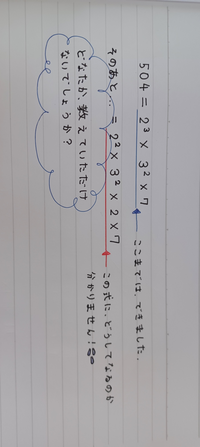 504 = 2³ × 3² × 7 ← ここまでは、できました。
そのあと… = 2² × 3² × 2 × 7 ← この式に、どうしてなるのか
分かりません!
どなたか、教えていただけ
ないでしょうか?